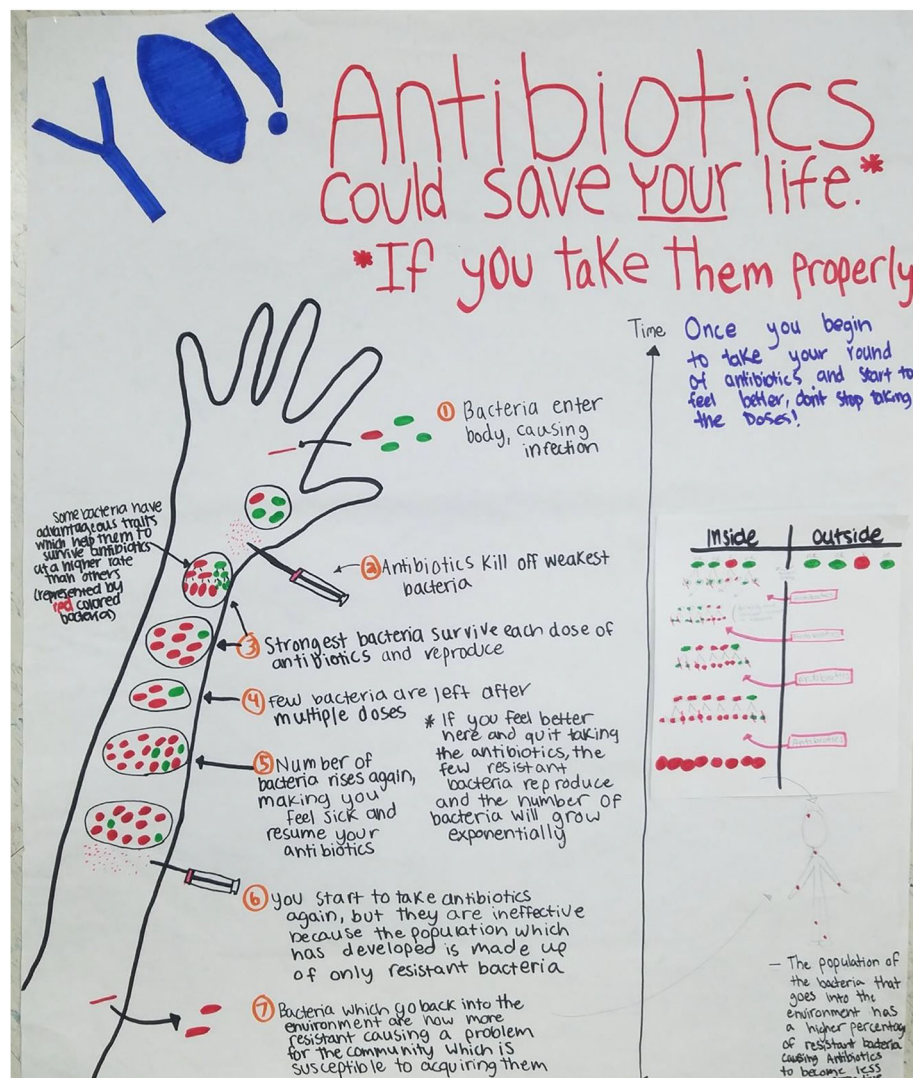 YO!
Antibiotics
could save your life.*
*If you take them properly
Time
Once you begin
to take your round
of antibiotics and start to
feel better, dont stop taking
the Doses!
① Bacteria enter
body, causing
infection
Some bacteria have
advantageous traits
which help them to
survive antibiotics
at a higher rate
than others
(represented by
red colored
bacteria)
② Antibiotics kill off weakest
bacteria
③ Strongest bacteria survive each dose of
antibiotics and reproduce
④ Few bacteria are left after
multiple doses
* If you feel better
here and quit taking
the antibiotics, the
few resistant
bacteria reproduce
and the number of
bacteria will grow
exponentially
⑤ Number of
bacteria rises again,
making you
feel sick and
resume your
antibiotics
⑥ you start to take antibiotics
again, but they are ineffective
because the population which
has developed is made up
of only resistant bacteria
⑦ Bacteria which go back into the
environment are now more
resistant causing a problem
for the community which is
susceptible to acquiring them
Inside
Outside
antibiotics
antibiotics
antibiotics
antibiotics
— The population of
the bacteria that
goes into the
environment has
a higher percentage
of resistant bacteria
causing Antibiotics
to become less